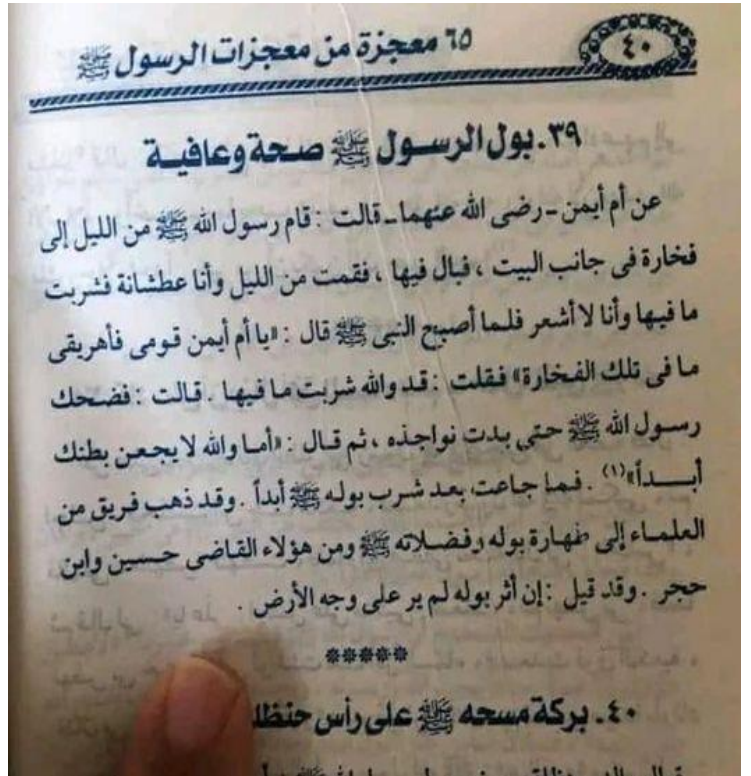 ٤٠
٦٥ معجزة من معجزات الرسول ﷺ
٣٩. بول الرسول ﷺ صحة وعافية
عن أم أيمن - رضى الله عنهما - قالت : قام رسول الله ﷺ من الليل إلى
فخارة فى جانب البيت ، فبال فيها ، فقمت من الليل وأنا عطشانة فشربت
ما فيها وأنا لا أشعر فلما أصبح النبى ﷺ قال : «يا أم أيمن قومى فأهريقى
ما فى تلك الفخارة» فقلت : قد والله شربت ما فيها . قالت : فضحك
رسول الله ﷺ حتى بدت نواجذه ، ثم قال : «أما والله لا يجعن بطنك
أبداً»(١) . فما جاعت بعد شرب بوله ﷺ أبداً . وقد ذهب فريق من
العلماء إلى طهارة بوله وفضلاته ﷺ ومن هؤلاء القاضى حسين وابن
حجر . وقد قيل : إن أثر بوله لم ير على وجه الأرض .
*****
٤٠. بركة مسحه ﷺ على رأس